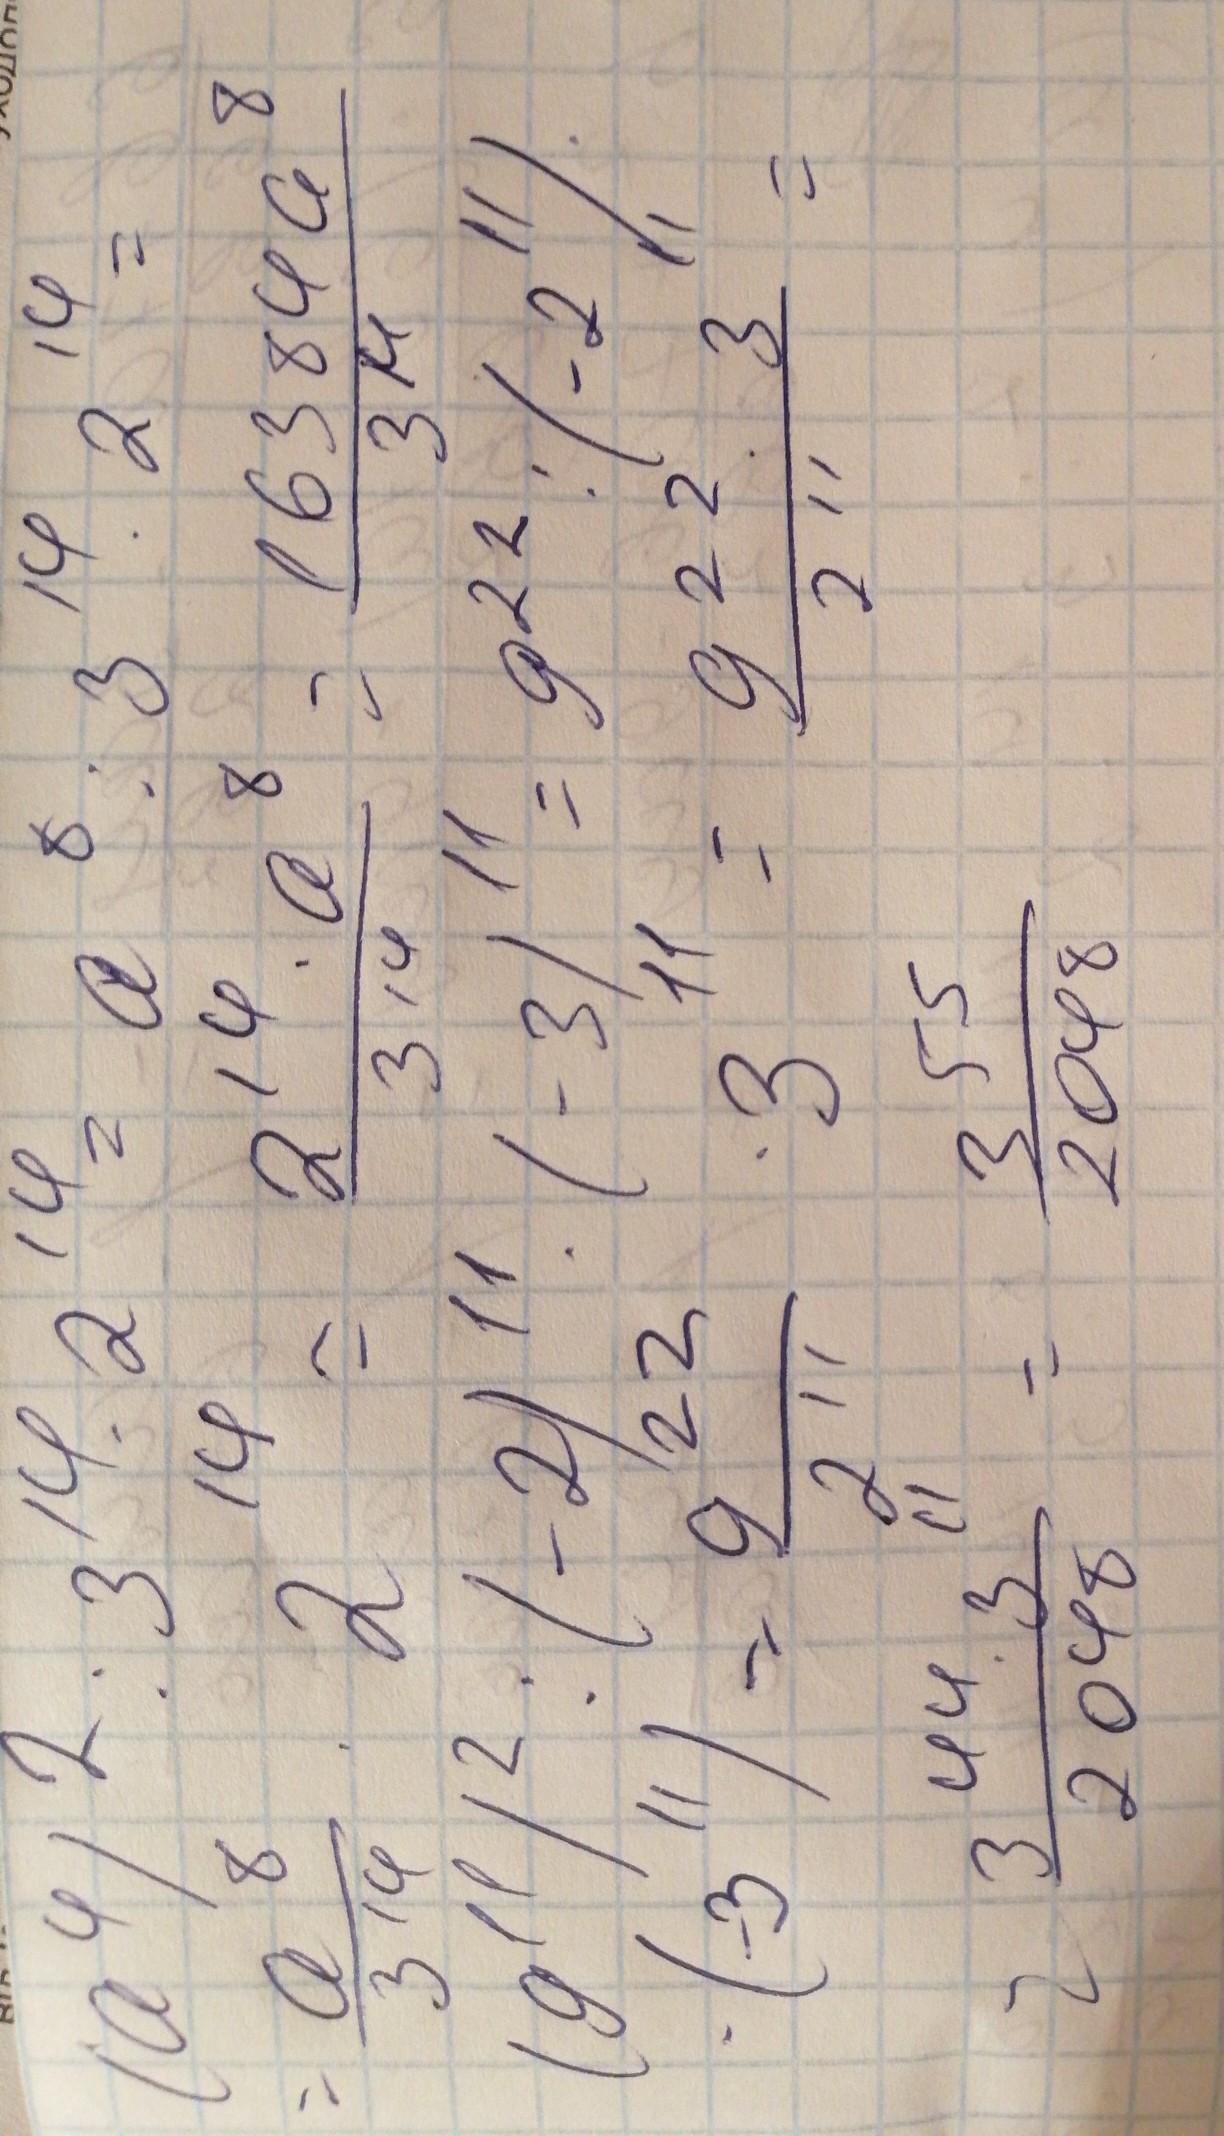 (a⁴)² : 3¹⁴ · 2¹⁴ = a⁸ : 3¹⁴ · 2¹⁴ =
= a⁸/3¹⁴ · 2¹⁴ = 2¹⁴ · a⁸/3¹⁴ = 16384a⁸/3¹⁴
(9¹¹)² : (-2)¹¹ · (-3)¹¹ = 9²² : (-2¹¹) ·
· (-3¹¹) = 9²²/2¹¹ · 3¹¹ = 9²² · 3¹¹/2¹¹ =
= 3⁴⁴ · 3¹¹/2048 = 3⁵⁵/2048